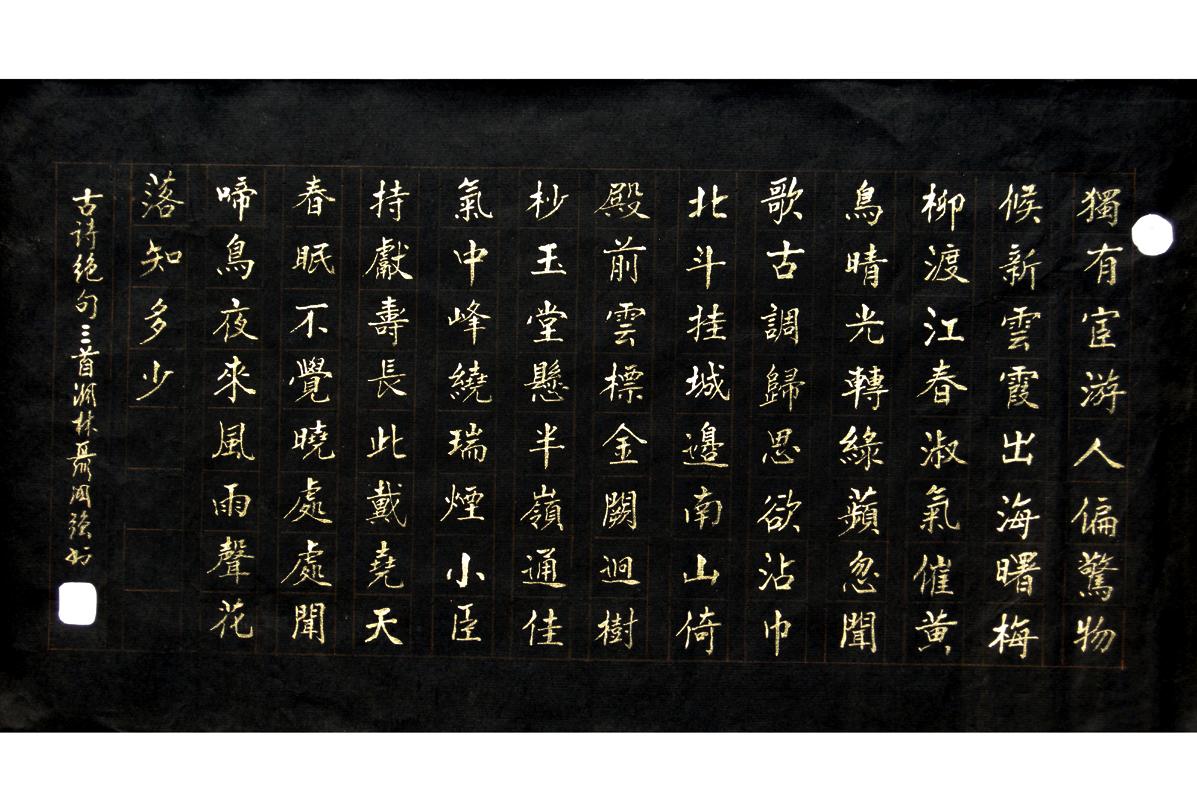 獨有宦游人偏驚物
候新雲霞出海曙梅
柳渡江春淑氣催黄
鳥晴光轉綠蘋忽聞
歌古調歸思欲沾巾
北斗挂城邊南山倚
殿前雲標金闕迥樹
杪玉堂懸半嶺通佳
氣中峰繞瑞煙小臣
持獻壽長此戴堯天
春眠不覺曉處處聞
啼鳥夜來風雨聲花
落知多少
古詩絕句三首湖林聶國強书